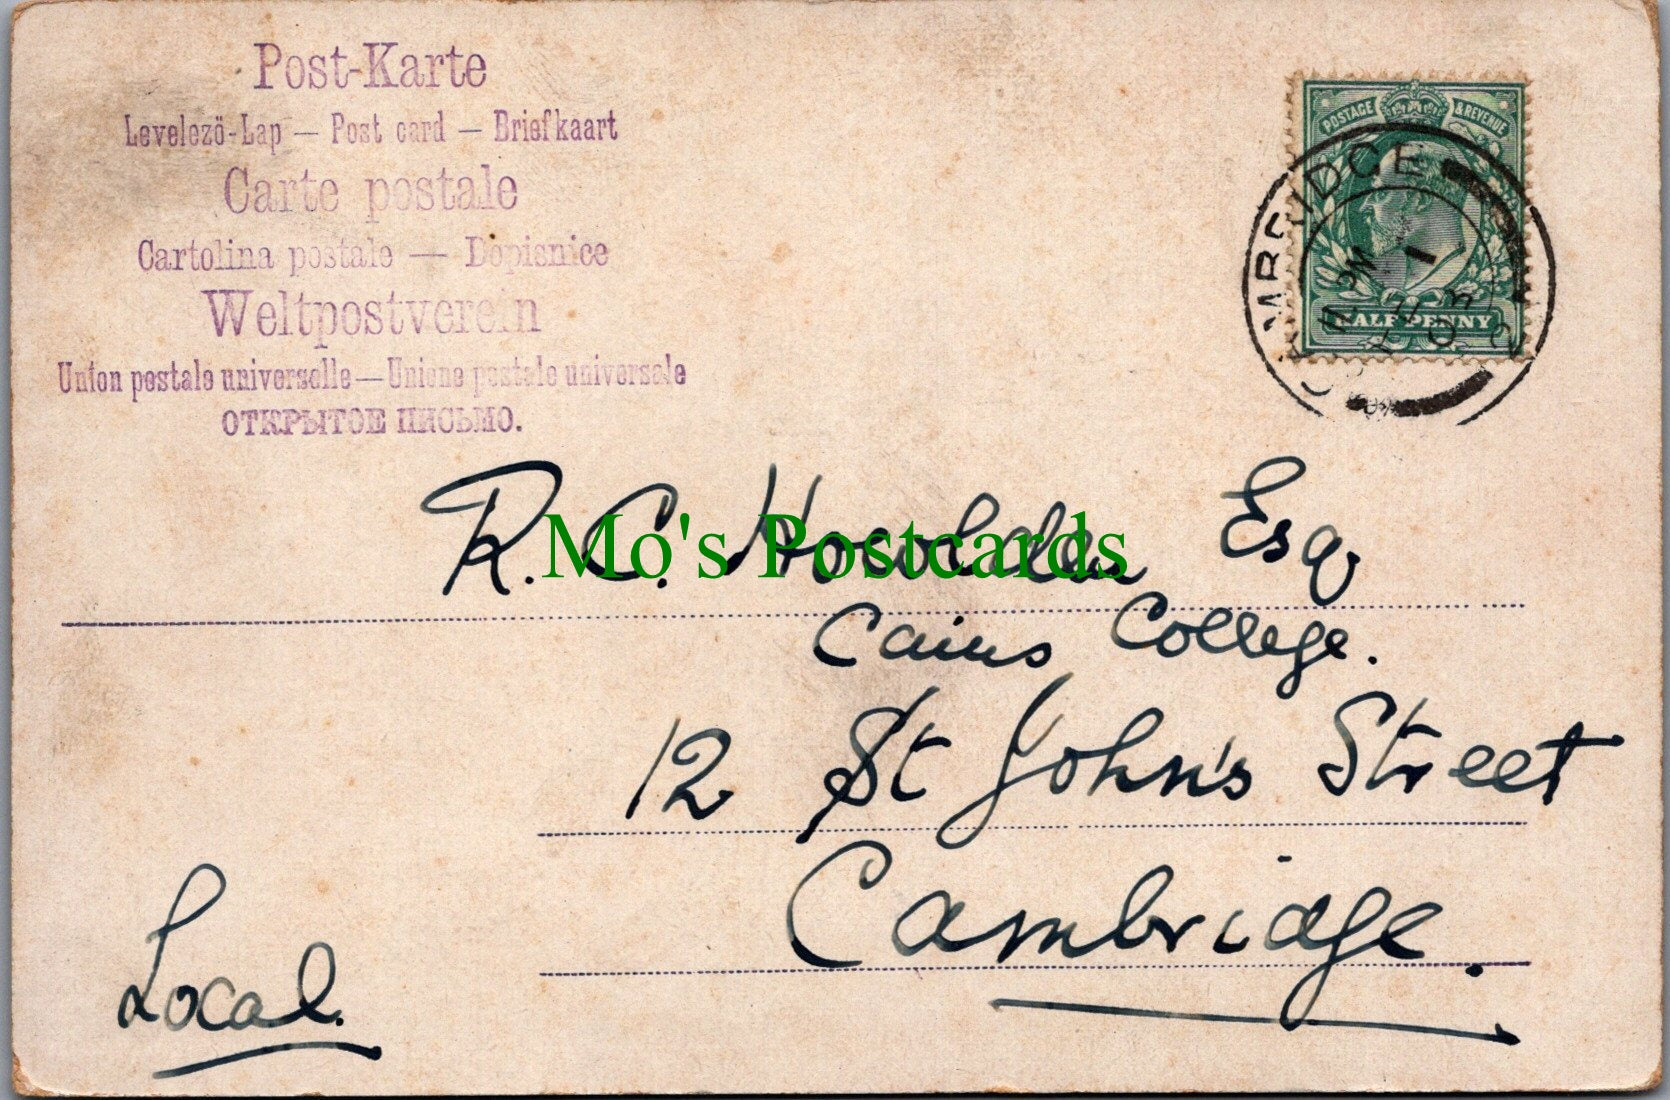 Post-Karte
Levelezö-Lap — Post card — Briefkaart
Carte postale
Cartolina postale — Dopisnice
Weltpostverein
Union postale universelle — Unione postale universale
ОТКРЫТОЕ ПИСЬМО.
POSTAGE & REVENUE
HALF PENNY
CAMBRIDGE
R. C.
Esq
Mo's Postcards
Caius College.
12 St John's Street
Cambridge.
Local.